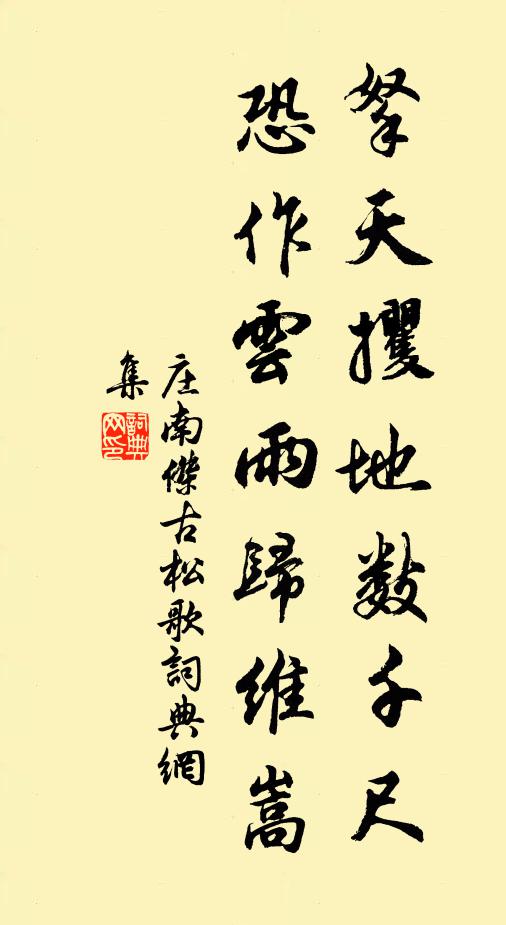 拏天攫地数千尺
恐作雲雨歸維嵩
庄南傑古松歌詞典網
集
詞典网印